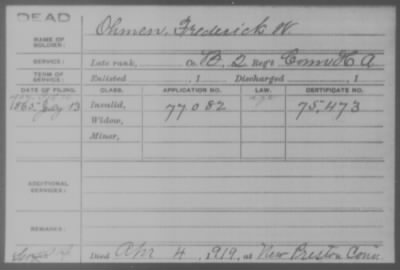 DEAD
NAME OF SOLDIER: Ohmen, Frederick W
SERVICE: Late rank, Co. B, 2 Reg't Conn H A
TERM OF SERVICE: Enlisted , 1 Discharged , 1
DATE OF FILING. CLASS. APPLICATION NO. LAW. CERTIFICATE NO.
1865 July 13 Invalid, 77082 75,473
Widow,
Minor,
ADDITIONAL SERVICES:
REMARKS:
Died Apr 4, 1919, at New Preston Conn.